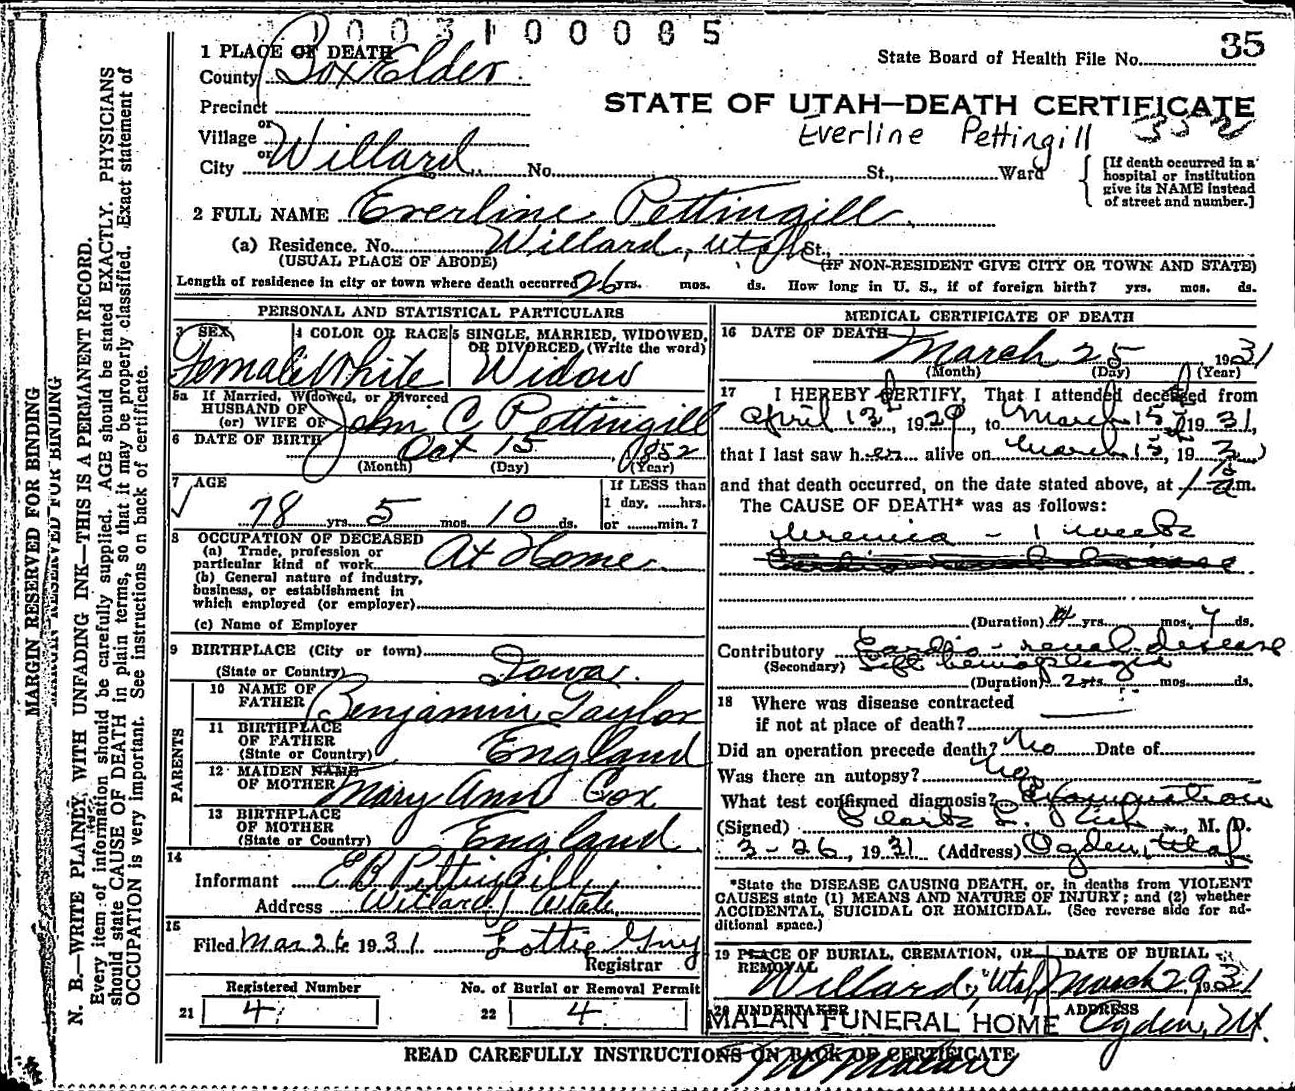 1003100065
35
1 PLACE OF DEATH
State Board of Health File No.
County Box Elder
STATE OF UTAH—DEATH CERTIFICATE
Precinct
Everline Pettingill
or
Village
or
City Willard No. St., Ward
[If death occurred in a
hospital or institution
give its NAME instead
of street and number.]
2 FULL NAME Everline Pettingill
(a) Residence. No. Willard, Utah St.,
(USUAL PLACE OF ABODE) (IF NON-RESIDENT GIVE CITY OR TOWN AND STATE)
Length of residence in city or town where death occurred 26 yrs. mos. ds. How long in U. S., if of foreign birth? yrs. mos. ds.
PERSONAL AND STATISTICAL PARTICULARS
3 SEX 4 COLOR OR RACE 5 SINGLE, MARRIED, WIDOWED,
OR DIVORCED, (Write the word)
Female White Widow
5a If Married, Widowed, or Divorced
HUSBAND OF
(or) WIFE OF John C Pettingill
6 DATE OF BIRTH Oct 15 1852
(Month) (Day) (Year)
7 AGE
If LESS than
1 day, hrs.
78 yrs. 5 mos. 10 ds. or min.?
8 OCCUPATION OF DECEASED
(a) Trade, profession or
particular kind of work At Home
(b) General nature of industry,
business, or establishment in
which employed (or employer)
(c) Name of Employer
9 BIRTHPLACE (City or town)
(State or Country) Iowa
PARENTS
10 NAME OF
FATHER Benjamin Taylor
11 BIRTHPLACE
OF FATHER
(State or Country) England
12 MAIDEN NAME
OF MOTHER Mary Ann Cox
13 BIRTHPLACE
OF MOTHER
(State or Country) England
14
Informant E B Pettingill
Address Willard Utah
15
Filed Mar 26 1931 Lottie Guy
Registrar
Registered Number No. of Burial or Removal Permit
21 4 22 4
MEDICAL CERTIFICATE OF DEATH
16 DATE OF DEATH
March 25 1931
(Month) (Day) (Year)
17 I HEREBY CERTIFY, That I attended deceased from
April 13, 1929, to March 15 1931,
that I last saw her alive on March 15, 193
and that death occurred, on the date stated above, at 1 a m.
The CAUSE OF DEATH* was as follows:
Uremia - 1 week
(Duration) yrs. mos. 7 ds.
Contributory Cardio-renal disease
(Secondary) Left hemoplegia
(Duration) 2 yrs. mos. ds.
18 Where was disease contracted
if not at place of death?
Did an operation precede death? No Date of
Was there an autopsy? No
What test confirmed diagnosis? Examination
(Signed) L. Rich, M. D.
3-26, 1931 (Address) Ogden, Utah
*State the DISEASE CAUSING DEATH, or, in deaths from VIOLENT
CAUSES state (1) MEANS AND NATURE OF INJURY; and (2) whether
ACCIDENTAL, SUICIDAL OR HOMICIDAL. (See reverse side for ad-
ditional space.)
19 PLACE OF BURIAL, CREMATION, OR DATE OF BURIAL
REMOVAL
Willard, Utah March 29 1931
20 UNDERTAKER ADDRESS
MALAN FUNERAL HOME Ogden, Ut.
READ CAREFULLY INSTRUCTIONS ON BACK OF CERTIFICATE
MARGIN RESERVED FOR BINDING
MARGIN RESERVED FOR BINDING
N. B.—WRITE PLAINLY, WITH UNFADING INK—THIS IS A PERMANENT RECORD.
Every item of information should be carefully supplied. AGE should be stated EXACTLY. PHYSICIANS
should state CAUSE OF DEATH in plain terms, so that it may be properly classified. Exact statement of
OCCUPATION is very important. See instructions on back of certificate.